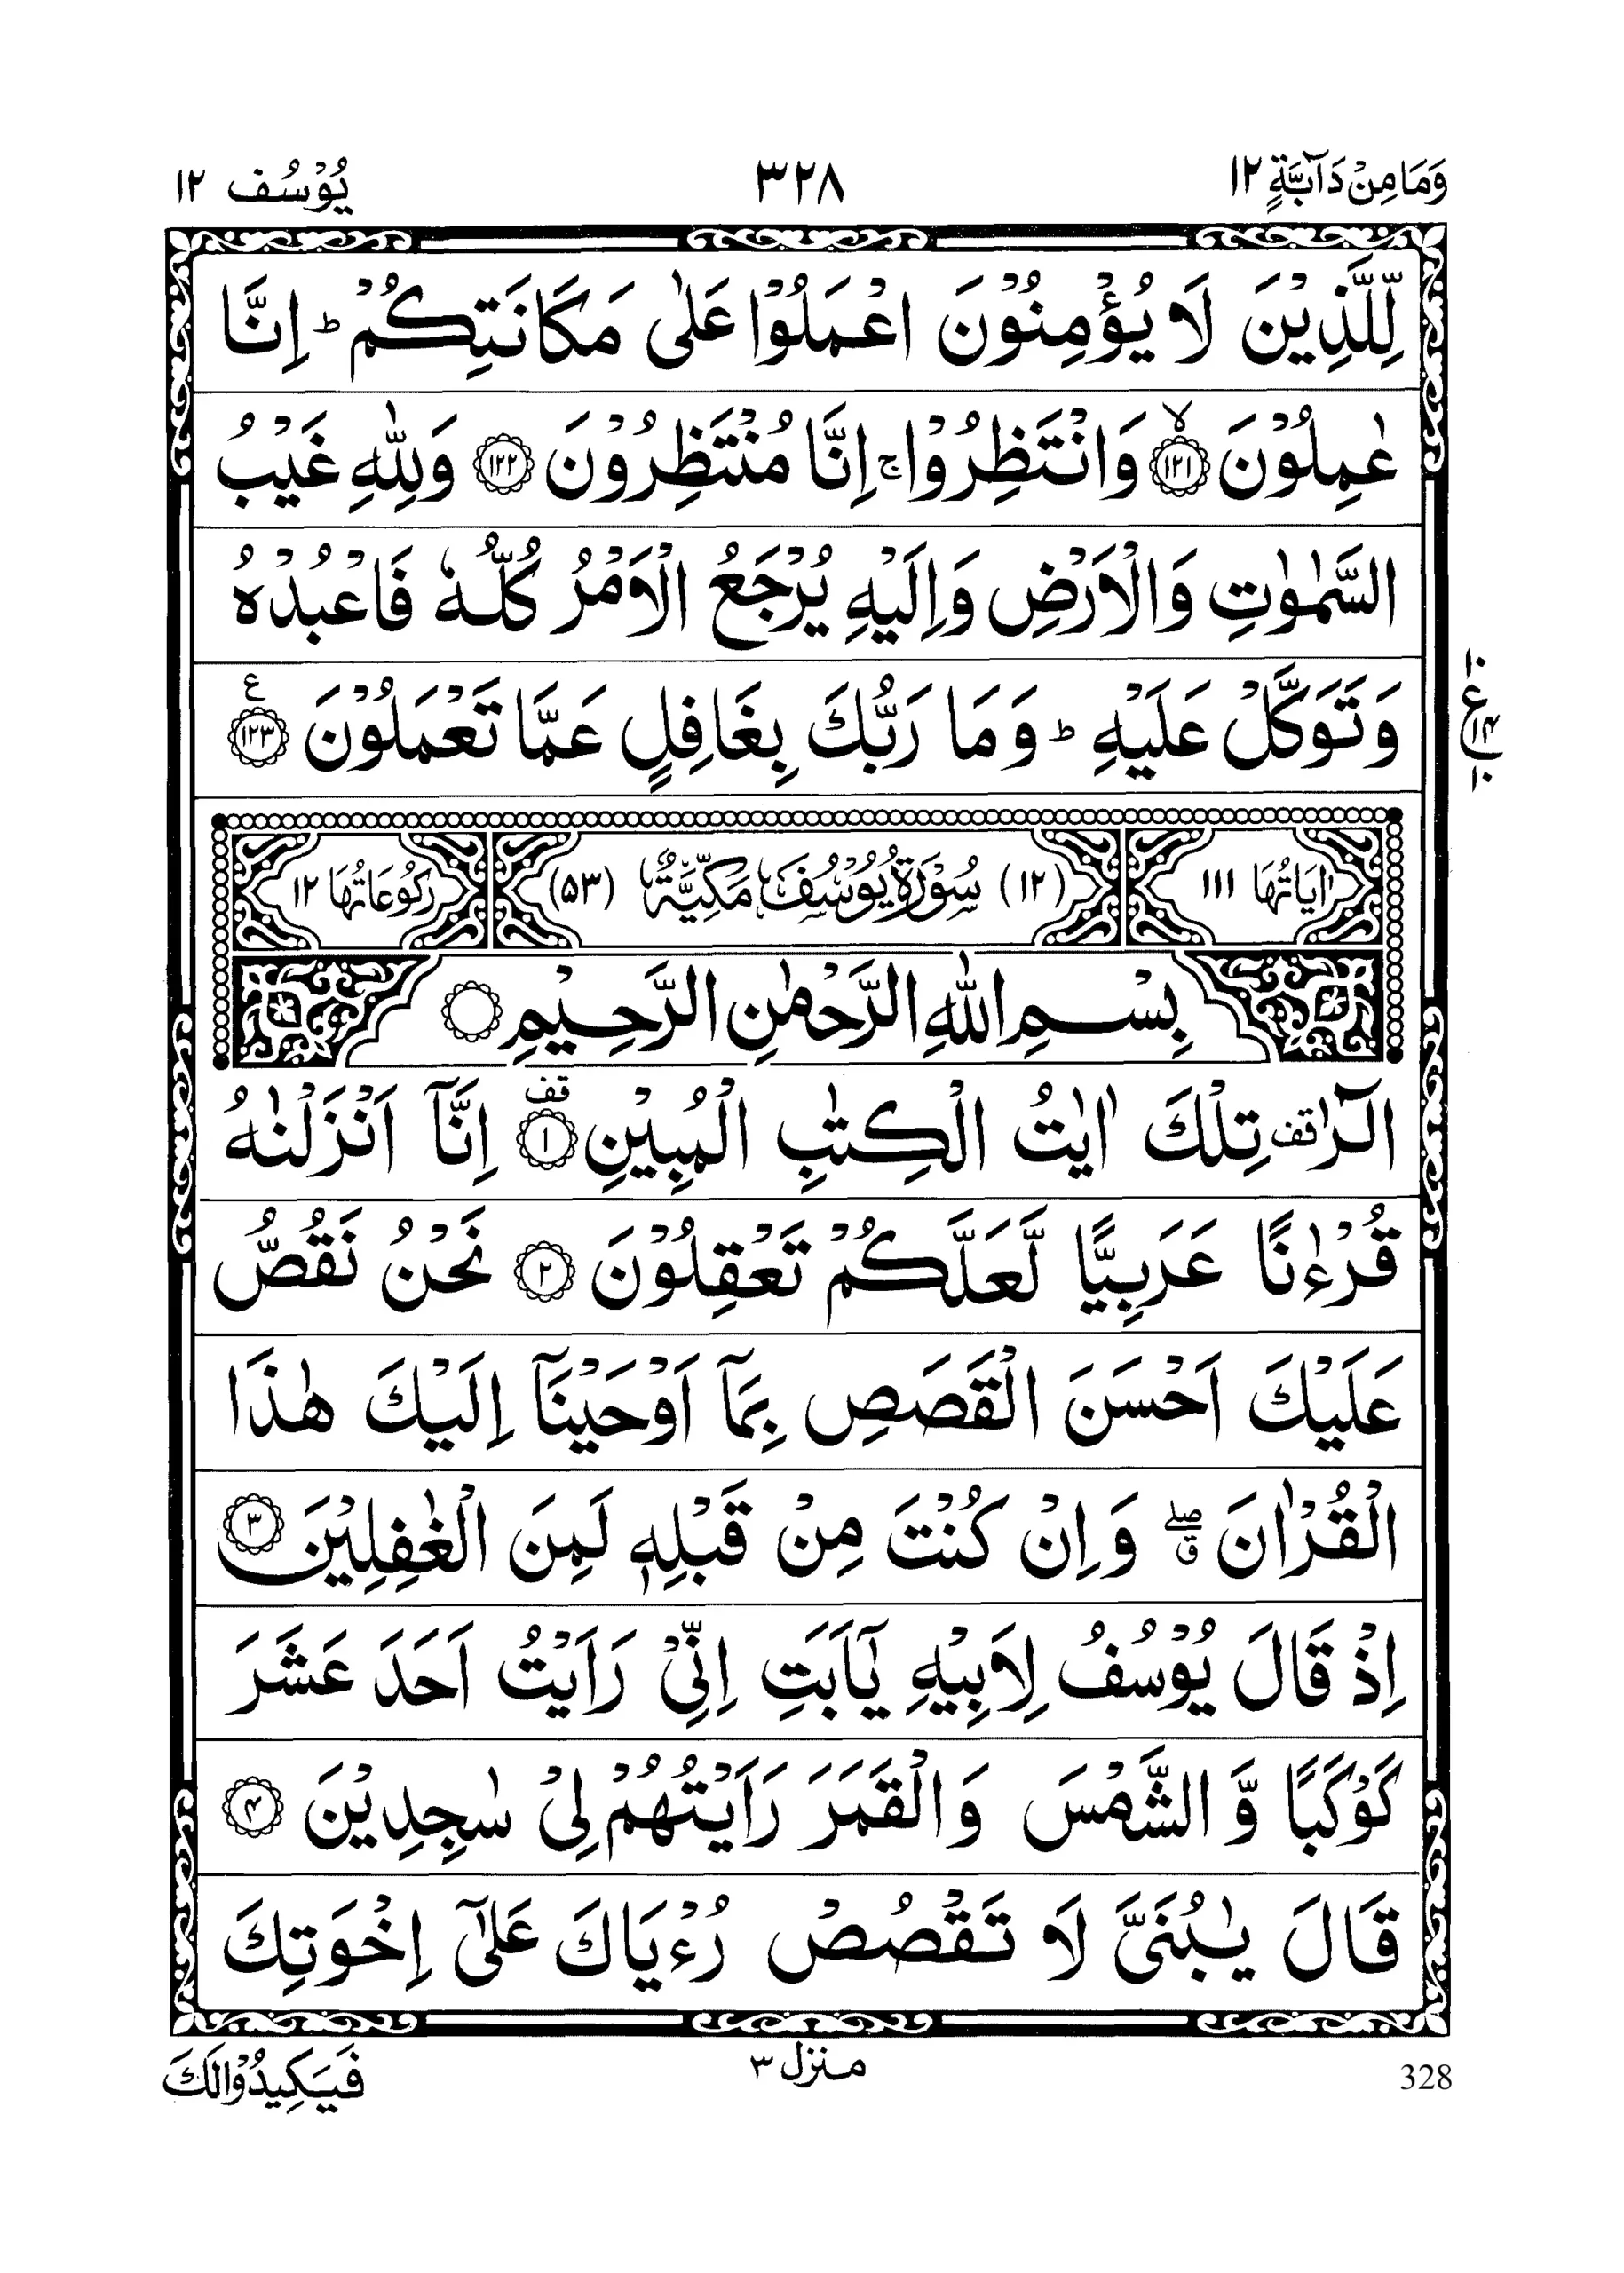 وَمَا مِنْ دَآبَّةٍ ١٢
٣٢٨
يُوْسُف ١٢
لِّلَّذِيْنَ لَا يُؤْمِنُوْنَ اعْمَلُوْا عَلٰى مَكَانَتِكُمْ ؕ اِنَّا
عٰمِلُوْنَ ۙ‏﴿۱۲۱﴾ وَانْتَظِرُوْا ۚ اِنَّا مُنْتَظِرُوْنَ ﴿۱۲۲﴾ وَلِلّٰهِ غَيْبُ
السَّمٰوٰتِ وَالْاَرْضِ وَاِلَيْهِ يُرْجَعُ الْاَمْرُ كُلُّهٗ فَاعْبُدْهُ
وَتَوَكَّلْ عَلَيْهِ ؕ وَمَا رَبُّكَ بِغَافِلٍ عَمَّا تَعْمَلُوْنَ ﴿۱۲۳﴾ ع
۱۰ ع ۱۴ ۱۰
اٰيَاتُهَا ١١١
(١٢) سُوْرَةُ يُوْسُفَ مَكِّيَّةٌ (٥٣)
رُكُوْعَاتُهَا ١٢
بِسْمِ اللّٰهِ الرَّحْمٰنِ الرَّحِيْمِ
الٓرٰ قف تِلْكَ اٰيٰتُ الْكِتٰبِ الْمُبِيْنِ ﴿۱﴾ قف اِنَّآ اَنْزَلْنٰهُ
قُرْءٰنًا عَرَبِيًّا لَّعَلَّكُمْ تَعْقِلُوْنَ ﴿۲﴾ نَحْنُ نَقُصُّ
عَلَيْكَ اَحْسَنَ الْقَصَصِ بِمَآ اَوْحَيْنَآ اِلَيْكَ هٰذَا
الْقُرْاٰنَ ۖق وَاِنْ كُنْتَ مِنْ قَبْلِهٖ لَمِنَ الْغٰفِلِيْنَ ﴿۳﴾
اِذْ قَالَ يُوْسُفُ لِاَبِيْهِ يٰٓاَبَتِ اِنِّيْ رَاَيْتُ اَحَدَ عَشَرَ
كَوْكَبًا وَّالشَّمْسَ وَالْقَمَرَ رَاَيْتُهُمْ لِيْ سٰجِدِيْنَ ﴿۴﴾
قَالَ يٰبُنَيَّ لَا تَقْصُصْ رُءْيَاكَ عَلٰٓى اِخْوَتِكَ
328
منزل ٣
فَيَكِيْدُوْا لَكَ